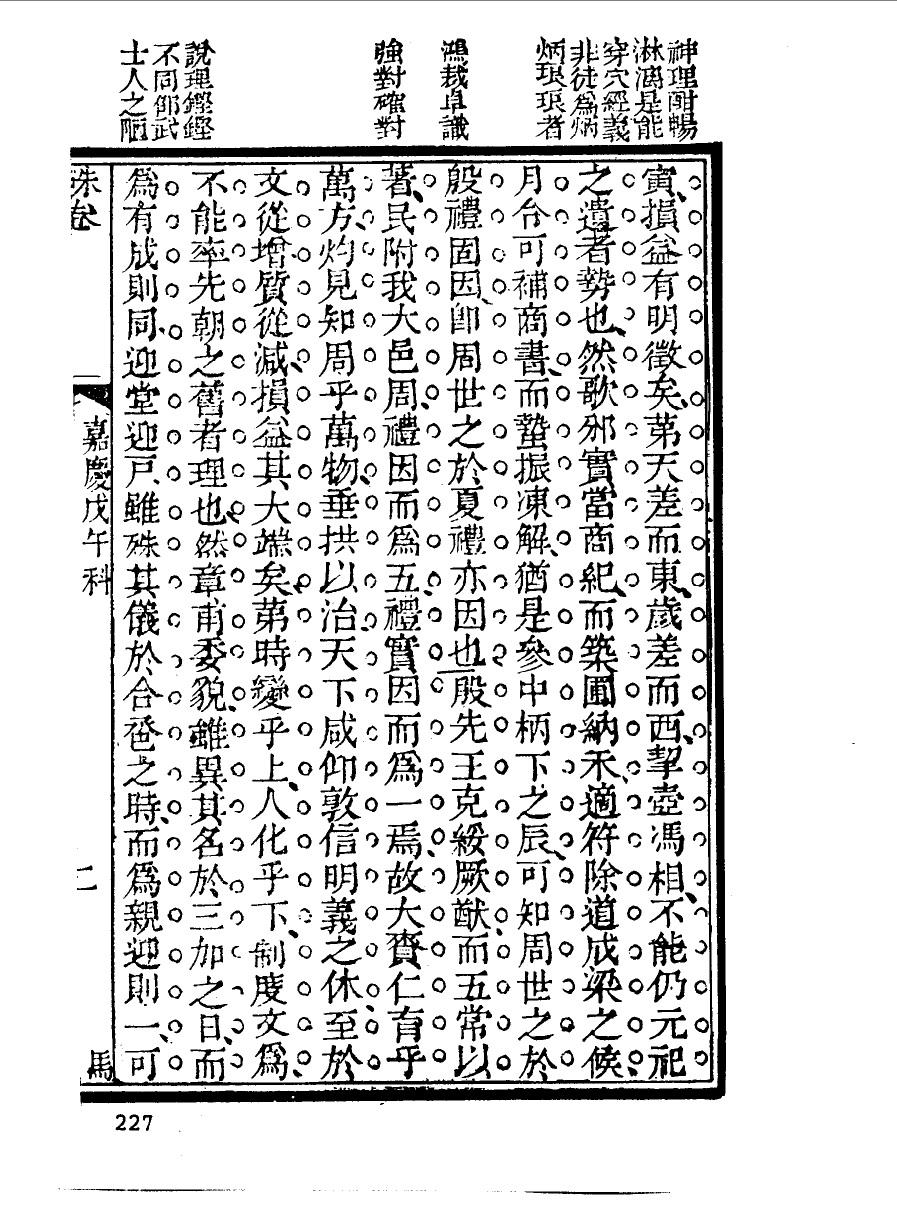 神理酣暢
淋漓是能
穿穴經義
非徒為炳
炳琅琅者
鴻裁卓識
強對確對
說理鏗鏗
不同鄉武
士人之陋
寅、損益有明徵矣、第天差而東、歲差而西、挈壺馮相、不能仍元祀
之遺者勢也、然歌邠實當商紀、而築圃納禾、適符除道成梁之候、
月令可補商書、而蟄振凍解、猶是參中柄下之辰、可知周世之於
殷禮固因、卽周世之於夏禮亦因也、殷先王克綏厥猷、而五常以
著、民附我大邑周、禮因而為五、禮實因而為一焉、故大賚仁育乎
萬方、灼見知周乎萬物、垂拱以治、天下咸仰敦信明義之休、至於
文從增質從減、損益其大端矣、第時變乎上、人化乎下、制度文為、
不能率先朝之舊者理也、然章甫委貌、雖異其名於三加之日、而
為有成則同、迎堂迎戶雖殊其儀於合巹之時、而為親迎則一、可
硃卷
嘉慶戊午科
二
馬
227